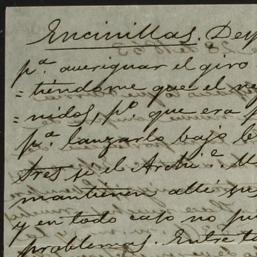 Encinillas. Dep
pª. averiguar el giro
=tiéndome que el ne
=nidos, pº. que era p
pª. lanzarlo bajo le
tres si el Archº. M
mantienen alle
y en todo caso no pu
problemas. Entre ta